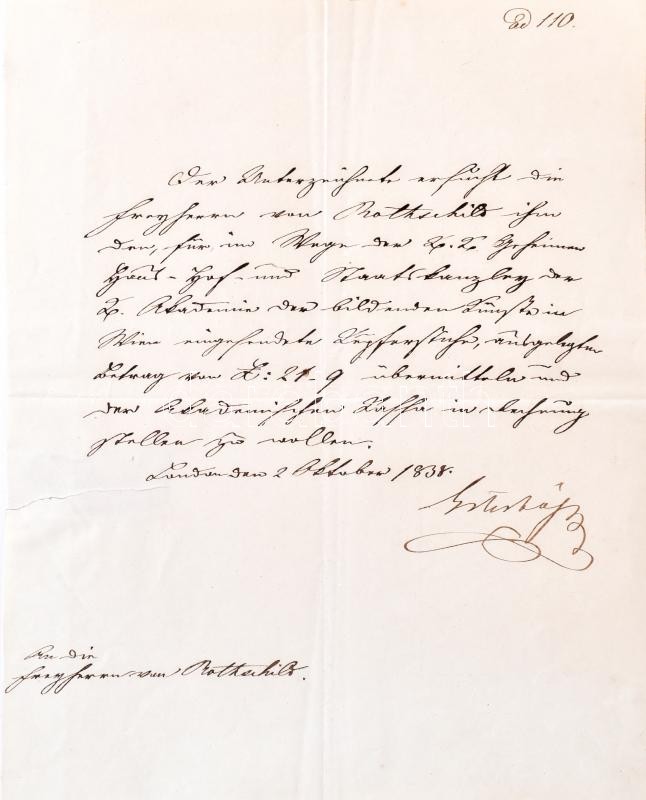 Ed 110.
Der Unterzeichnete ersucht die
Freyherrn von Rothschild ihm
den, für im Wege der K. K. Geheimen
Haus- Hof- und Staatskanzley der
K. Akademie der bildenden Künste in
Wien eingesendete Kupferstiche, ausgelegten
Betrag von £: 21-9 übermitteln und
der Akademischen Cassa in Rechnung
stellen zu wollen.
London den 2 Oktober 1838.
Esterházy
An die
Freyherrn von Rothschild.